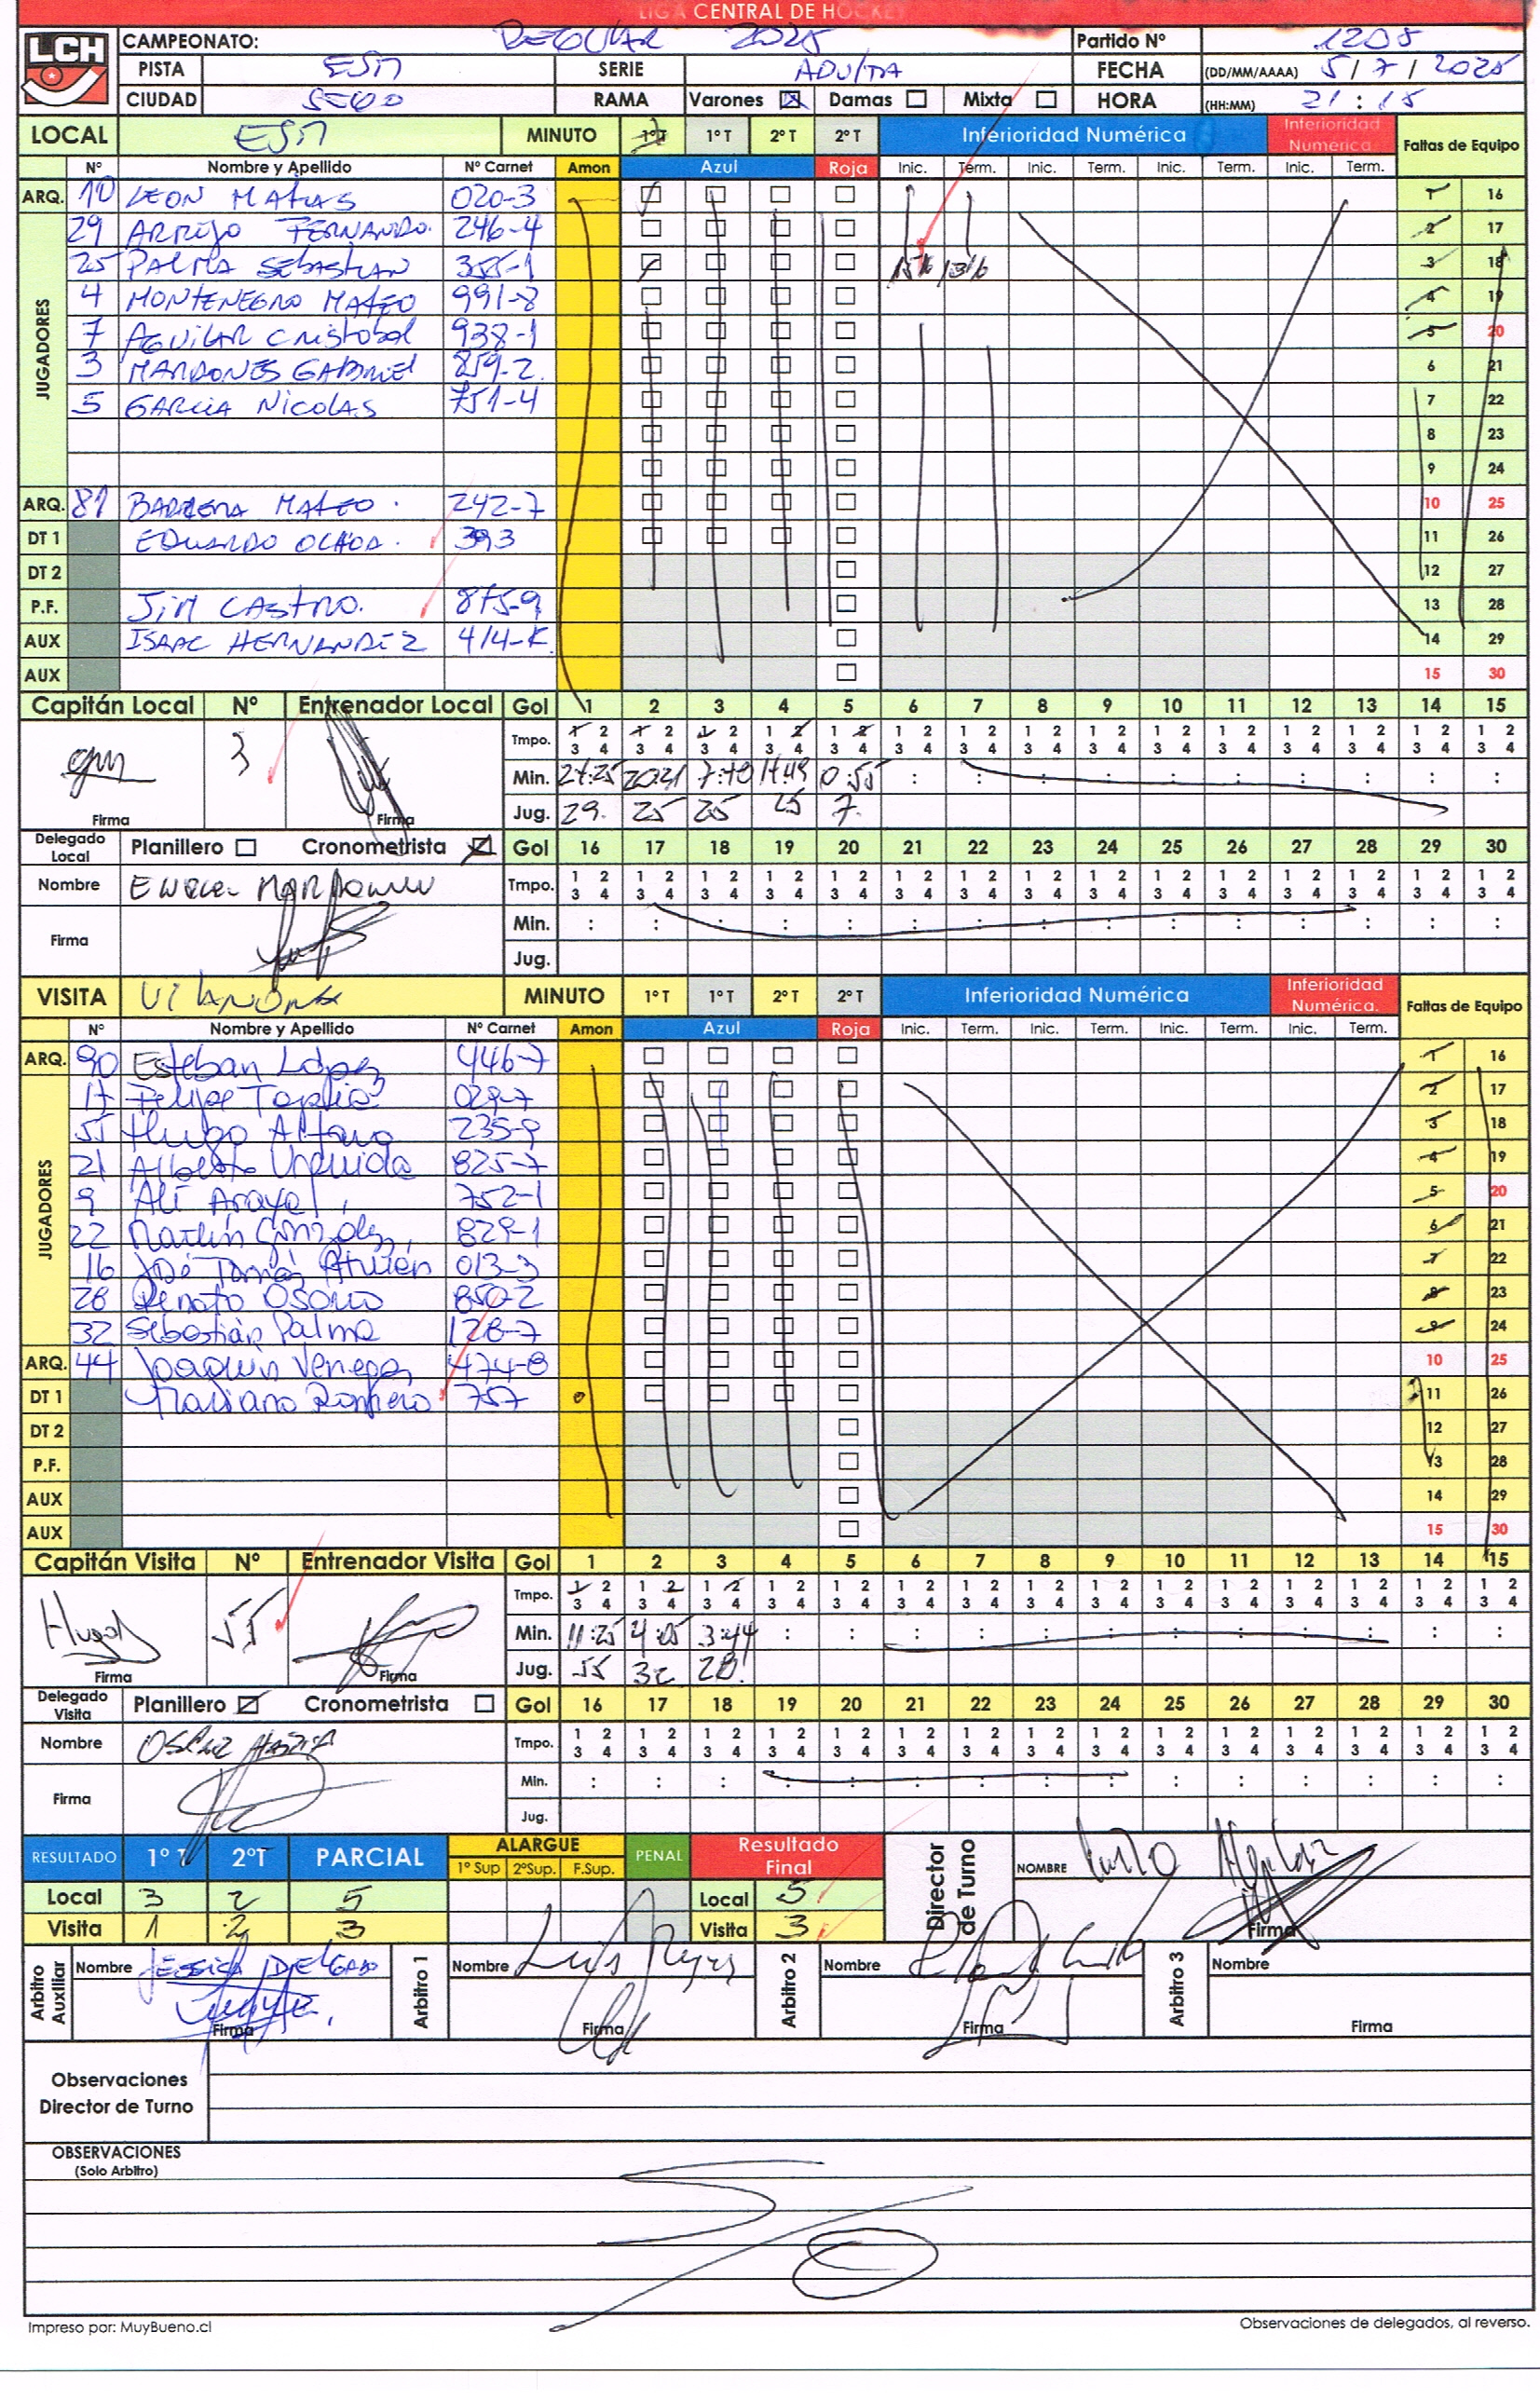 LIGA CENTRAL DE HOCKEY
LCH
CAMPEONATO: REGULAR 2025 Partido Nº 1208
PISTA ESM SERIE ADULTA FECHA (DD/MM/AAAA) 5/7/2025
CIUDAD SECO RAMA Varones Damas Mixta HORA (HH:MM) 21:15
LOCAL ESM MINUTO 1ºT 1ºT 2ºT 2ºT Inferioridad Numérica Inferioridad Numérica Faltas de Equipo
Nº Nombre y Apellido Nº Carnet Amon Azul Roja Inic. Term. Inic. Term. Inic. Term. Inic. Term.
ARQ. 10 LEON MATIAS 020-3 1 16
JUGADORES
29 ARROJO FERNANDO. 246-4 2 17
25 PALMA SEBASTIAN 355-1 3 18
4 MONTENEGRO MATEO 991-8 4 19
7 AGUILAR CRISTOBAL 938-1 5 20
3 MARDONES GABRIEL 859-2 6 21
5 GARCIA NICOLAS 751-4 7 22
8 23
9 24
ARQ. 81 BARRERA MATEO. 242-7 10 25
DT 1 EDUARDO OCHOA. 393 11 26
DT 2 12 27
P.F. JIM CASTRO. 875-9 13 28
AUX ISAAC HERNANDEZ 414-K 14 29
AUX 15 30
Capitán Local Nº Entrenador Local Gol 1 2 3 4 5 6 7 8 9 10 11 12 13 14 15
3 Tmpo. 1 2 3 4
Min. 24:25 20:21 7:40 14:49 0:55
Firma Firma Jug. 29. 25 25 25 7.
Delegado Local Planillero Cronometrista Gol 16 17 18 19 20 21 22 23 24 25 26 27 28 29 30
Nombre Tmpo. 1 2 3 4
Firma Min.
Jug.
VISITA VILANOVA MINUTO 1ºT 1ºT 2ºT 2ºT Inferioridad Numérica Inferioridad Numérica. Faltas de Equipo
Nº Nombre y Apellido Nº Carnet Amon Azul Roja Inic. Term. Inic. Term. Inic. Term. Inic. Term.
ARQ. 90 Esteban López 446-7 1 16
JUGADORES
17 Felipe Tapia 029-7 2 17
55 Hugo Alfaro 235-9 3 18
21 Alberto Urquida 825-7 4 19
9 Alí Araya 752-1 5 20
22 Martín González 829-1 6 21
16 José Tomás 013-3 7 22
28 Renato Osorio 850-2 8 23
32 Sebastián Palma 128-7 9 24
ARQ. 44 Joaquín Venegas 474-8 10 25
DT 1 Mariano Romero 757 11 26
DT 2 12 27
P.F. 13 28
AUX 14 29
AUX 15 30
Capitán Visita Nº Entrenador Visita Gol 1 2 3 4 5 6 7 8 9 10 11 12 13 14 15
Hugo 55 Tmpo. 1 2 3 4
Min. 11:25 4:05 3:44
Firma Firma Jug. 55 32 28
Delegado Visita Planillero Cronometrista Gol 16 17 18 19 20 21 22 23 24 25 26 27 28 29 30
Nombre Tmpo. 1 2 3 4
Firma Min.
Jug.
RESULTADO 1º T 2ºT PARCIAL ALARGUE 1º Sup 2ºSup. F.Sup. PENAL Resultado Final Director de Turno NOMBRE
Local 3 2 5 Local 5
Visita 1 2 3 Visita 3 Firma
Arbitro Auxiliar Nombre JESSICA DELGADO Arbitro 1 Nombre Luis Reyes Arbitro 2 Nombre Arbitro 3 Nombre
Firma Firma Firma Firma
Observaciones Director de Turno
OBSERVACIONES (Solo Arbitro)
Impreso por: MuyBueno.cl Observaciones de delegados, al reverso.